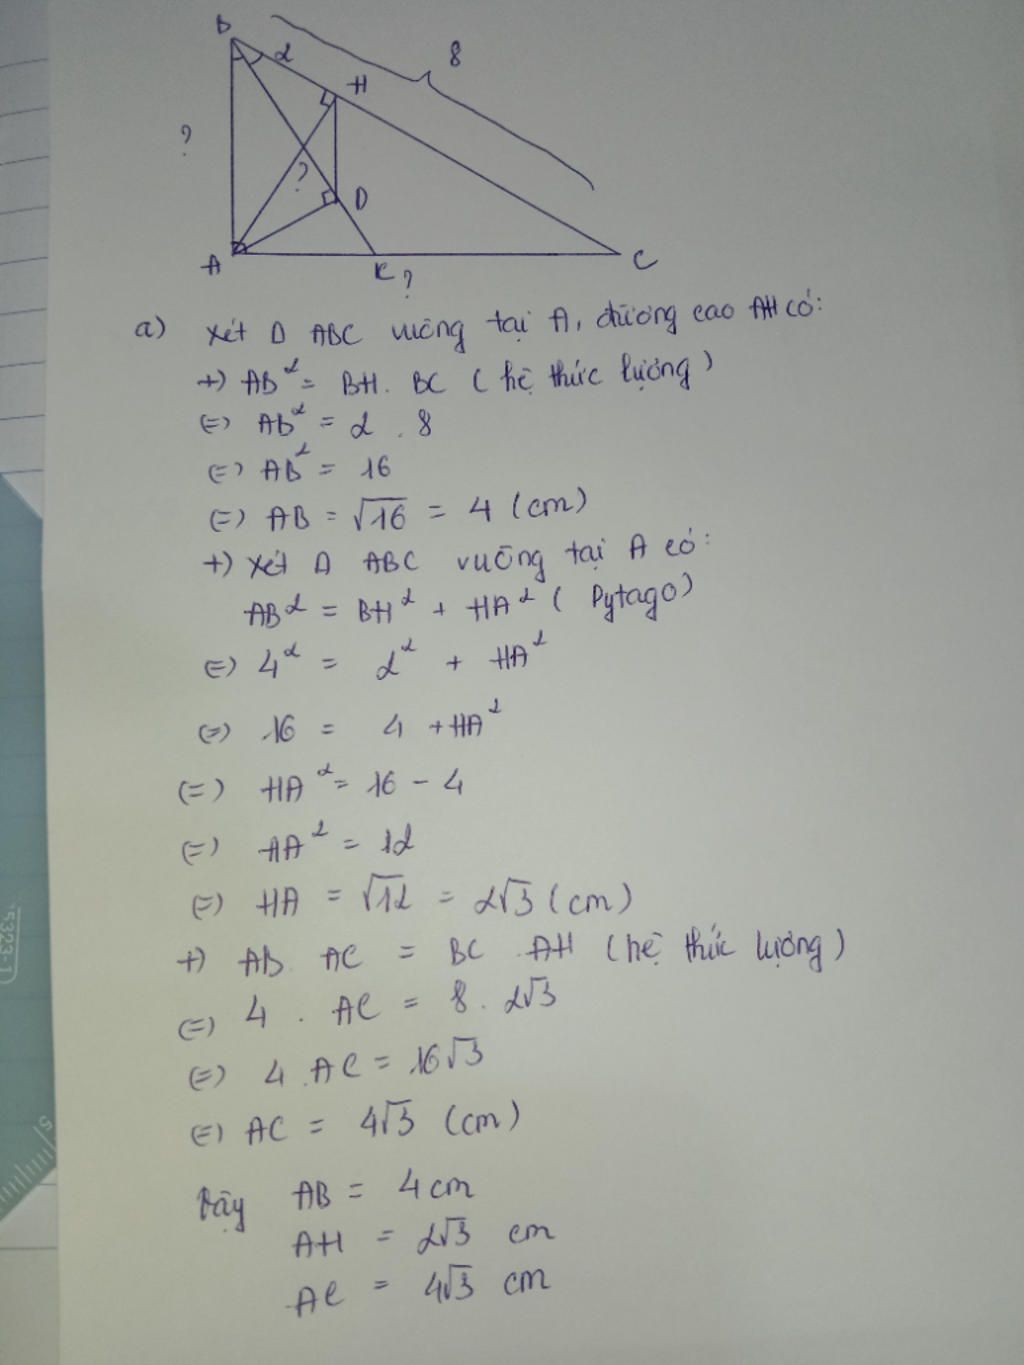 B
2
H
8
?
?
D
A
K
?
C
a) Xét Δ ABC vuông tại A, đường cao AH có:
+) AB² = BH. BC (hệ thức lượng)
(=) AB² = 2 . 8
(=) AB² = 16
(=) AB = √16 = 4 (cm)
+) Xét Δ ABC vuông tại A có:
AB² = BH² + HA² ( Pytago)
(=) 4² = 2² + HA²
(=) 16 = 4 + HA²
(=) HA² = 16 - 4
(=) HA² = 12
(=) HA = √12 = 2√3 (cm)
+) AB. AC = BC . AH (hệ thức lượng)
(=) 4 . AC = 8 . 2√3
(=) 4 . AC = 16√3
(=) AC = 4√3 (cm)
Vậy AB = 4 cm
AH = 2√3 cm
AC = 4√3 cm